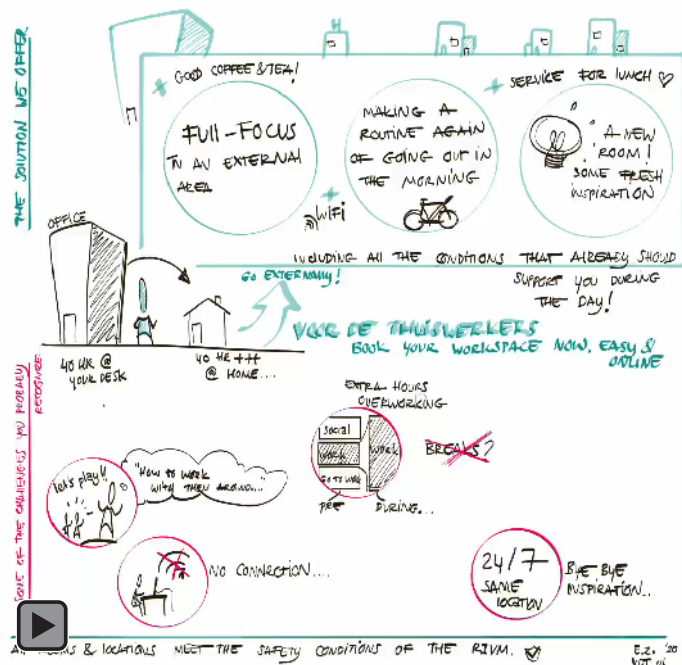 THE SOLUTION WE OFFER
H
GOOD COFFEE & TEA!
SERVICE FOR LUNCH
FULL-FOCUS
IN AN EXTERNAL
AREA
MAKING A
ROUTINE AGAIN
OF GOING OUT IN
THE MORNING
A NEW
ROOM!
SOME FRESH
INSPIRATION
WIFI
INCLUDING All THE CONDITIONS THAT ALREADY SHOULD
SUPPORT YOU DURING
THE DAY!
OFFICE
GO EXTERNALLY!
VOOR DE THUISWERKERS
BOOK YOUR WORKSPACE NOW, EASY &
ONLINE
40 HR @
YOUR DESK
40 HR ++
@ HOME....
SOME OF THE CHALLENGES YOU PROBABLY
RECOGNIZE
EXTRA HOURS
OVERWORKING
Social
WORK
GO TO WORK
WORK
PRE
DURING...
BREAKS?
let's play!!
"HOW TO WORK
WITH THEM AROUND..."
NO CONNECTION....
24/7
SAME
LOCATION
BYE BYE
INSPIRATION..
& LOCATIONS MEET THE SAFETY CONDITIONS OF THE RIVM.
E.Z. '20